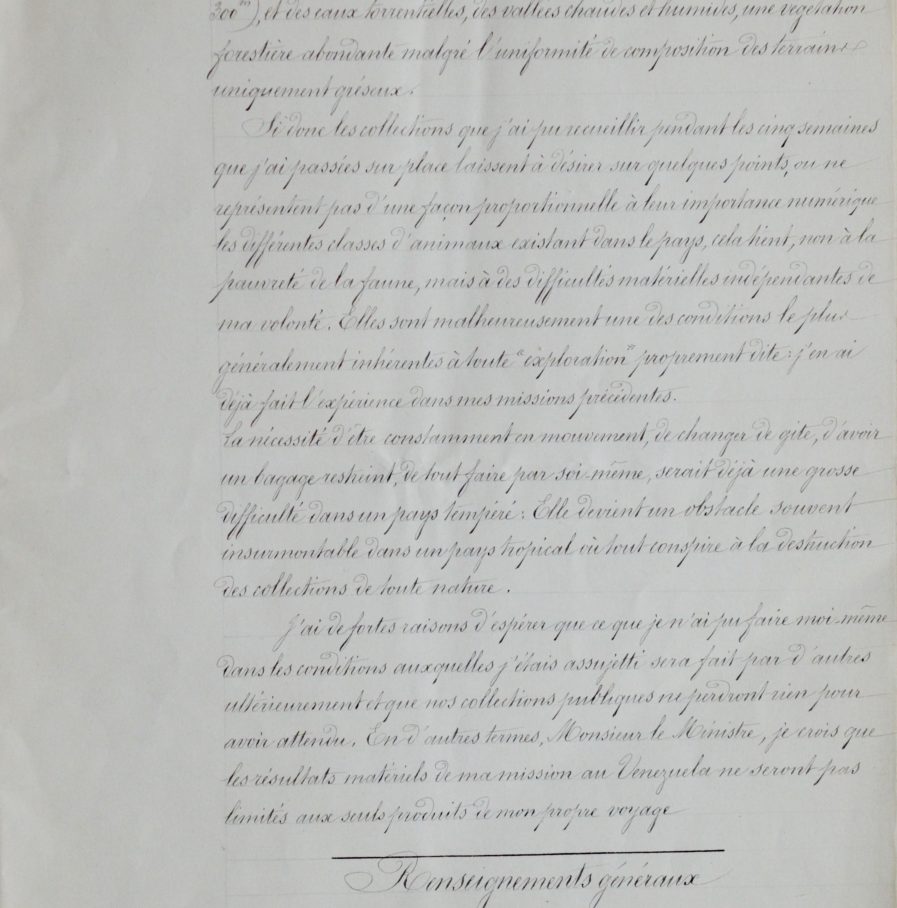 300ᵐ), et des eaux torrentielles, des vallées chaudes et humides, une végétation
forestière abondante malgré l'uniformité de composition des terrains
uniquement gréseux.
Si donc les collections que j'ai pu recueillir pendant les cinq semaines
que j'ai passées sur place laissent à désirer sur quelques points, ou ne
représentent pas d'une façon proportionnelle à leur importance numérique
les différentes classes d'animaux existant dans le pays, cela tient, non à la
pauvreté de la faune, mais à des difficultés matérielles indépendantes de
ma volonté. Elles sont malheureusement une des conditions le plus
généralement inhérentes à toute "exploration" proprement dite : j'en ai
déjà fait l'expérience dans mes missions précédentes.
La nécessité d'être constamment en mouvement, de changer de gîte, d'avoir
un bagage restreint, de tout faire par soi-même, serait déjà une grosse
difficulté dans un pays tempéré : Elle devient un obstacle souvent
insurmontable dans un pays tropical où tout conspire à la destruction
des collections de toute nature.
J'ai de fortes raisons d'espérer que ce que je n'ai pu faire moi-même
dans les conditions auxquelles j'étais assujetti sera fait par d'autres
ultérieurement et que nos collections publiques ne perdront rien pour
avoir attendu. En d'autres termes, Monsieur le Ministre, je crois que
les résultats matériels de ma mission au Venezuela ne seront pas
limités aux seuls produits de mon propre voyage
Renseignements généraux